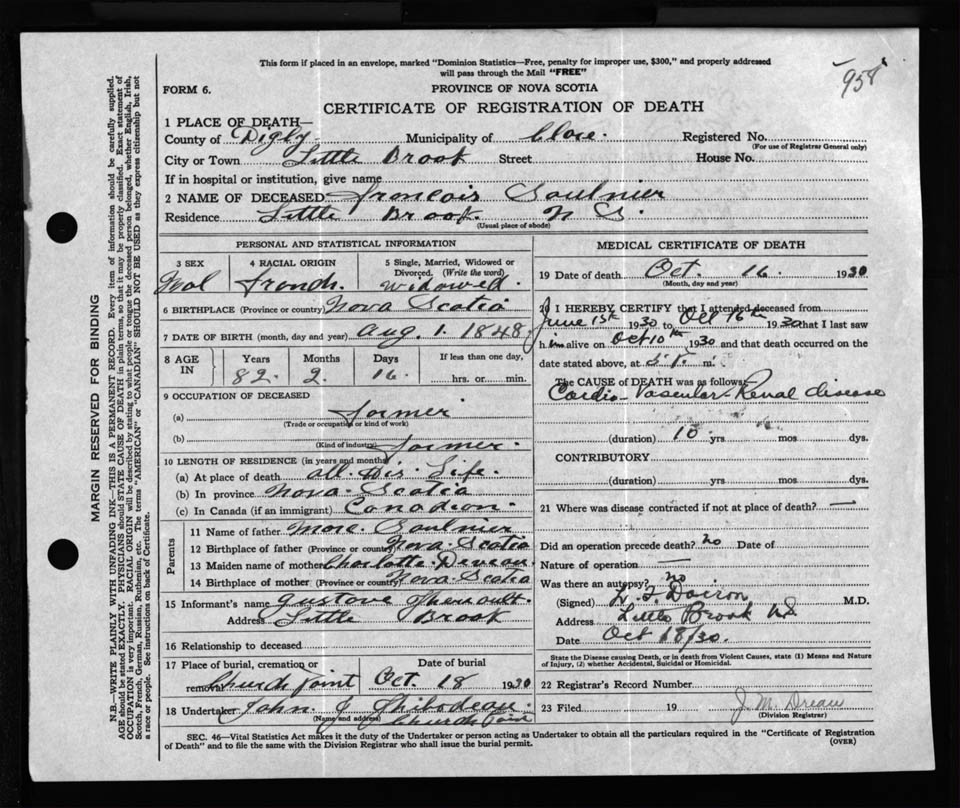 This form if placed in an envelope, marked "Dominion Statistics—Free, penalty for improper use, $300," and properly addressed
will pass through the Mail "FREE"
958
FORM 6.
PROVINCE OF NOVA SCOTIA
CERTIFICATE OF REGISTRATION OF DEATH
1 PLACE OF DEATH—
County of Digby Municipality of Clare. Registered No.
(For use of Registrar General only)
City or Town Little Brook Street House No.
If in hospital or institution, give name
2 NAME OF DECEASED Francois Saulnier
Residence Little Brook. N S.
(Usual place of abode)
PERSONAL AND STATISTICAL INFORMATION
3 SEX 4 RACIAL ORIGIN 5 Single, Married, Widowed or
Divorced. (Write the word)
Mal French. Widowed.
6 BIRTHPLACE (Province or country) Nova Scotia
7 DATE OF BIRTH (month, day and year) Aug. 1. 1848.
8 AGE IN Years Months Days If less than one day,
82. 2. 16. hrs. or min.
9 OCCUPATION OF DECEASED
(a) Farmer
(Trade or occupation or kind of work)
(b) Farmer.
(Kind of industry)
10 LENGTH OF RESIDENCE (in years and months)
(a) At place of death all His Life.
(b) In province Nova Scotia
(c) In Canada (if an immigrant) Canadian.
Parents
11 Name of father Marc Saulnier
12 Birthplace of father (Province or country) Nova Scotia
13 Maiden name of mother Charlotte Deveau
14 Birthplace of mother (Province or country) Nova Scotia
15 Informant's name Gustave Theriault.
Address Little Brook
16 Relationship to deceased
17 Place of burial, cremation or Date of burial
removal Church Point Oct. 18 1930
18 Undertaker John J Thibodeau.
(Name and address) Church Point
MEDICAL CERTIFICATE OF DEATH
19 Date of death Oct. 16. 1930
(Month, day and year)
20 I HEREBY CERTIFY that I attended deceased from
June 15th 1930 to Oct 16th 1930 that I last saw
him alive on Oct 10th 1930 and that death occurred on the
date stated above, at m.
The CAUSE of DEATH was as follows:—
Cardio-Vascular-Renal disease
(duration) 10 yrs mos dys.
CONTRIBUTORY
(duration) yrs. mos. dys.
21 Where was disease contracted if not at place of death? —
Did an operation precede death? no Date of
Nature of operation —
Was there an autopsy? no
(Signed) L. F. Doiron M.D.
Address Little Brook NS
Date Oct 18/30.
State the Disease causing Death, or in death from Violent Causes, state (1) Means and Nature
of Injury, (2) whether Accidental, Suicidal or Homicidal.
22 Registrar's Record Number
23 Filed 19 J. M.
(Division Registrar)
SEC. 46—Vital Statistics Act makes it the duty of the Undertaker or person acting as Undertaker to obtain all the particulars required in the "Certificate of Registration
of Death" and to file the same with the Division Registrar who shall issue the burial permit. (OVER)
MARGIN RESERVED FOR BINDING
N.B.—WRITE PLAINLY WITH UNFADING INK—THIS IS A PERMANENT RECORD. Every item of information should be carefully supplied.
AGE should be stated EXACTLY. PHYSICIANS should STATE CAUSE OF DEATH in plain terms, so that it may be properly classified. Exact statement of
OCCUPATION is very important. RACIAL ORIGIN will be described by stating to what people or tongue the deceased person belonged, whether English, Irish,
Scotch, French, German, Russian, Ruthenian, etc. The terms "AMERICAN" or "CANADIAN" SHOULD NOT BE USED as they express citizenship but not
a race or people. See instructions on back of Certificate.